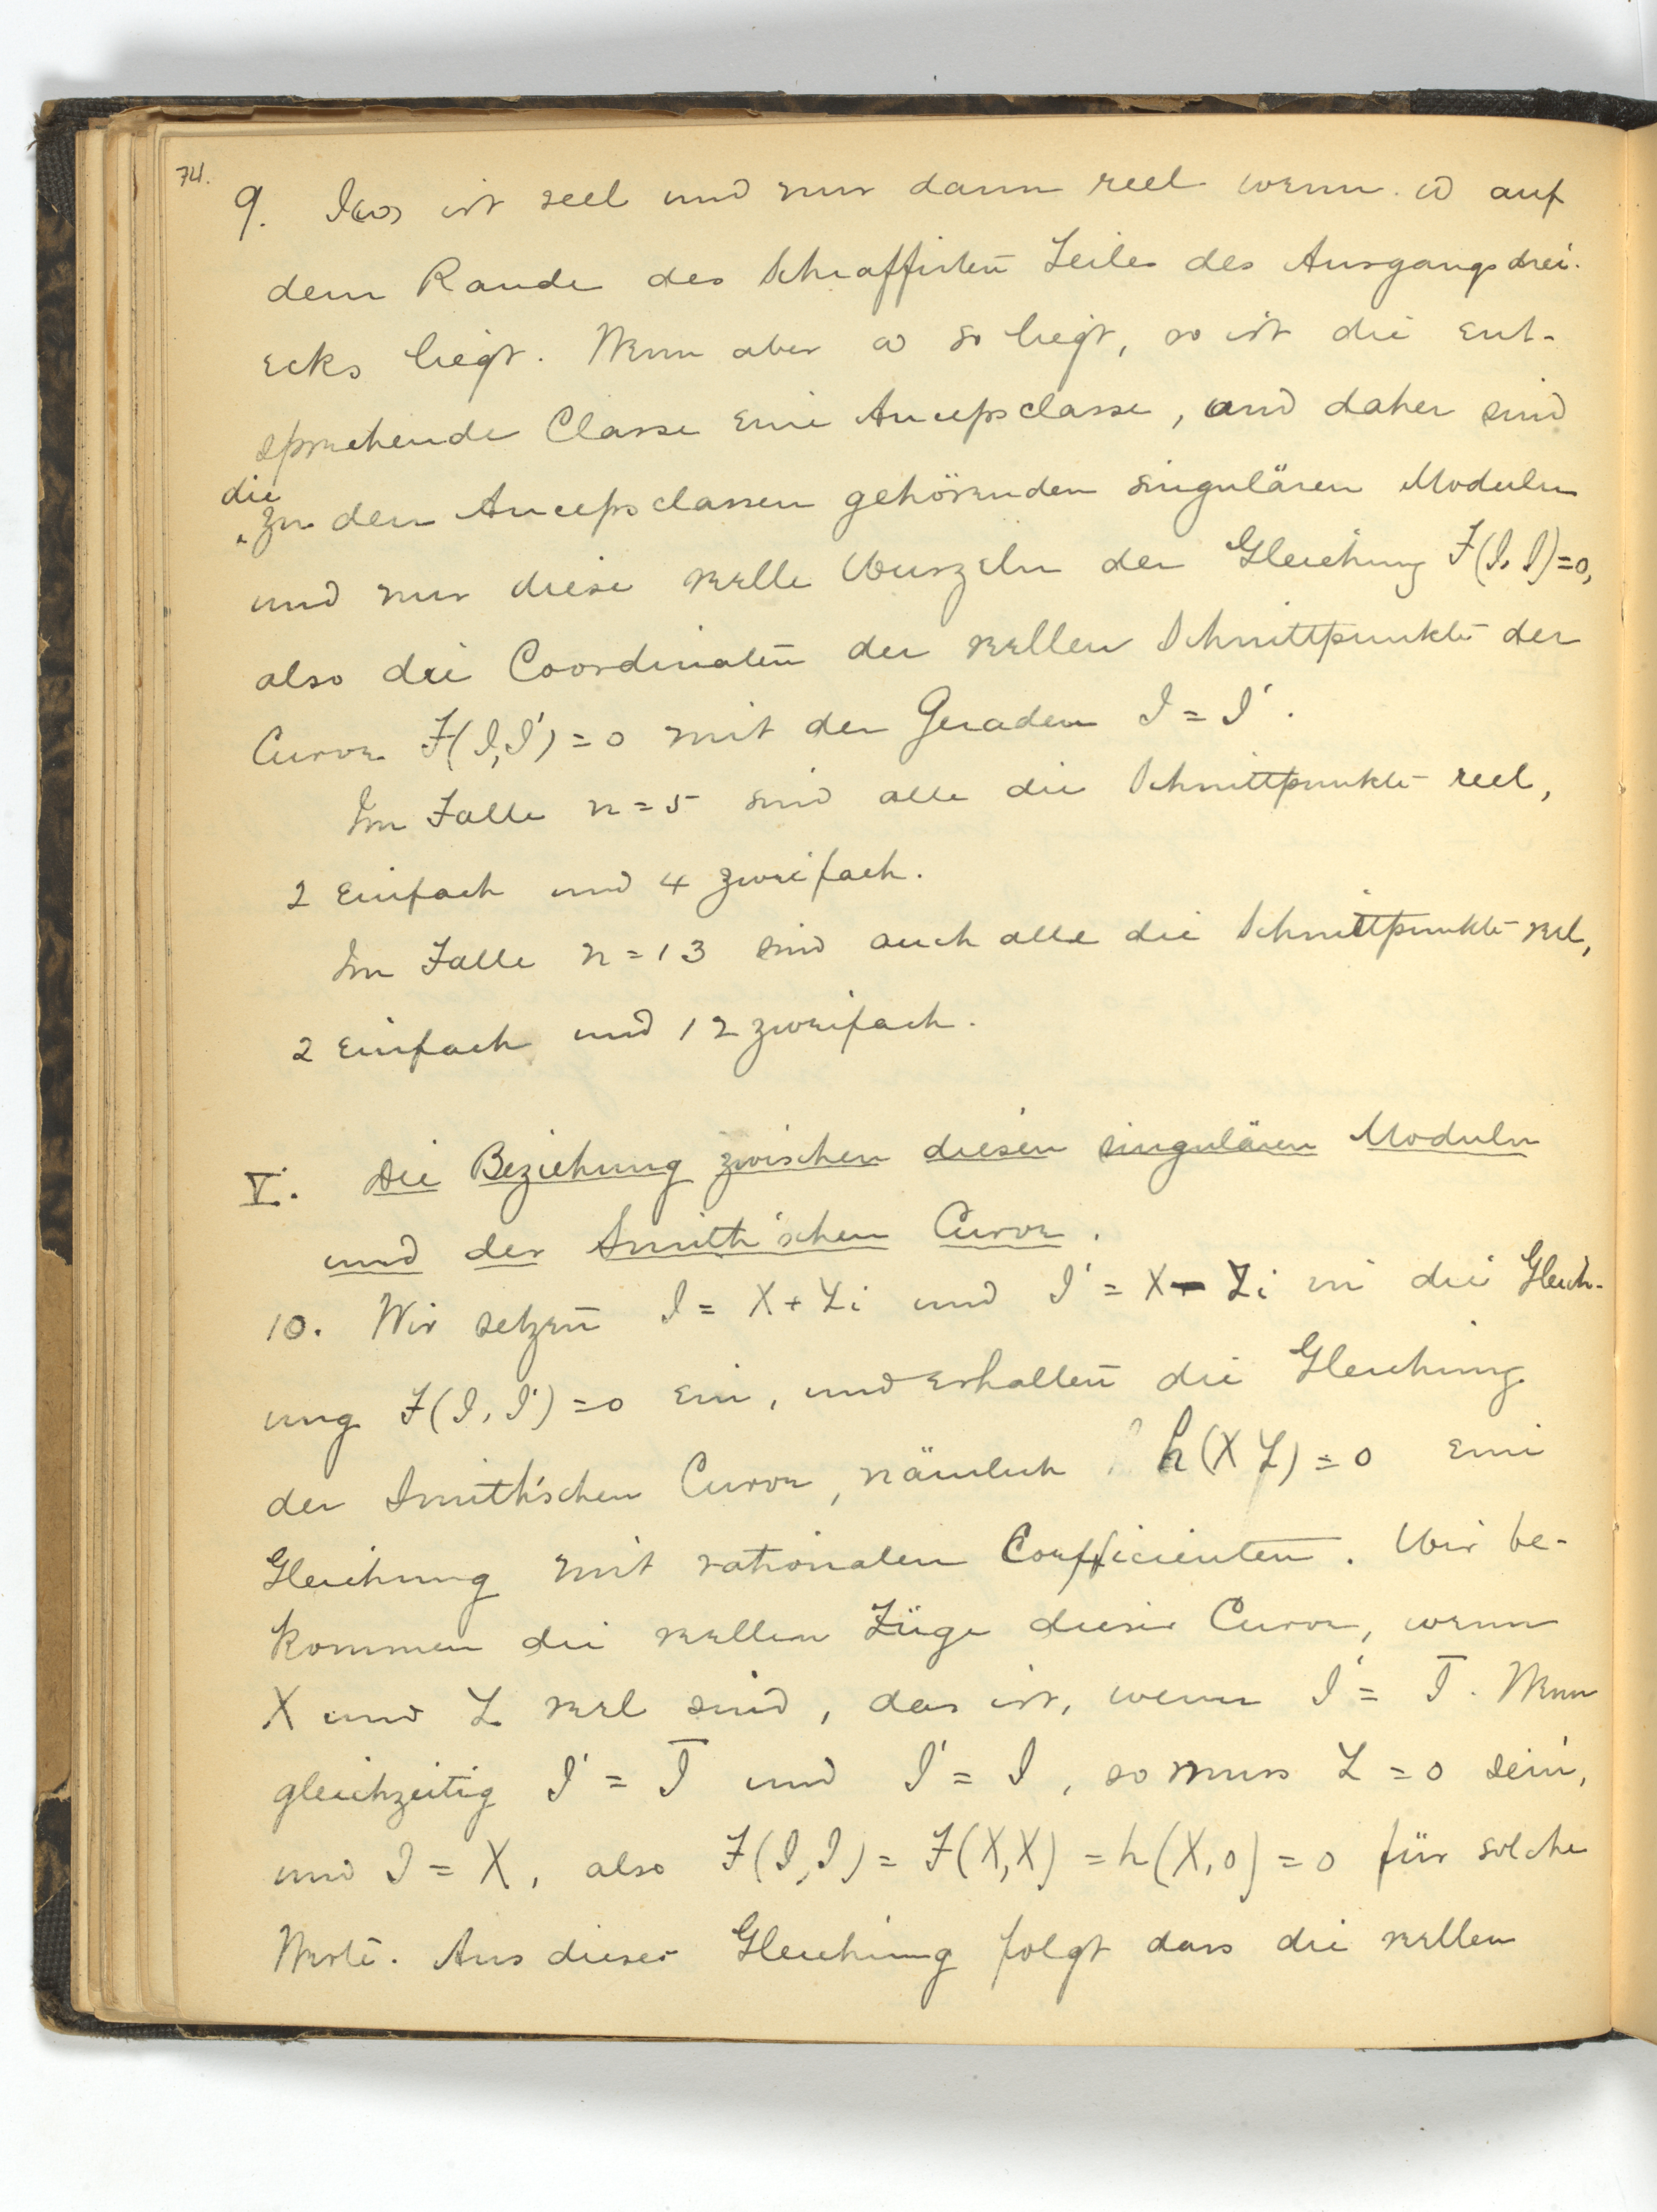 74.
9. J(ω) ist reel und nur dann reel wenn ω auf
dem Rande des Schraffirten Teiles des Ausgangsdrei-
ecks liegt. Wenn aber ω so liegt, so ist die ent-
sprechende Classe eine Ancepsclasse, und daher sind
die
zu den Ancepsclassen gehörenden singulären Moduln
und nur diese reelle Wurzeln der Gleichung F(J, J)=0,
also die Coordinaten der reellen Schnittpunkte der
Curve F(J, J')=0 mit der Geraden J = J'.
Im Falle n=5 sind alle die Schnittpunkte reel,
2 Einfach und 4 zweifach.
Im Falle n=13 sind auch alle die Schnittpunkte reel,
2 Einfach und 12 zweifach.
V. Die Beziehung zwischen diesen singulären Moduln
und der Smith'schen Curve.
10. Wir setzen J = X+Yi und J' = X-Yi in die Gleich-
ung F(J, J')=0 ein, und erhalten die Gleichung
der Smith'schen Curve, nämlich h(XY)=0 eine
Gleichung mit rationalen Coefficienten. Wir be-
kommen die reellen Züge dieser Curve, wenn
X und Y reel sind, das ist, wenn J' = J̅. Wenn
gleichzeitig J' = J̅ und J' = J, so muss Y=0 sein,
und J = X, also F(J,J) = F(X,X) = h(X,0) = 0 für solche
Werte. Aus dieser Gleichung folgt dass die reellen